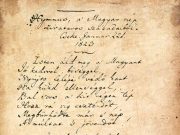 Hymnus, a' Magyar nép
zivataros századaiból.
Cseke Januar 22d
1823.
Isten áldd meg a' Magyart
Jó kedvvel, bőséggel,
Nyújts feléje védő kart,
Ha küzd ellenséggel;
Bal sors a' kit régen tép,
Hozz rá víg esztendőt,
Megbünhödte már e' nép
A' multat 's jövendőt.